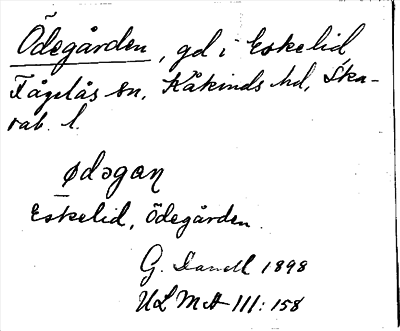 Ödegården, gd i Eskelid
Fågelås sn, Kåkinds hd, Ska-
rab. l.
ødəgaɲ
Eskelid, Ödegården.
G. Danell 1898
ULMA 111:158